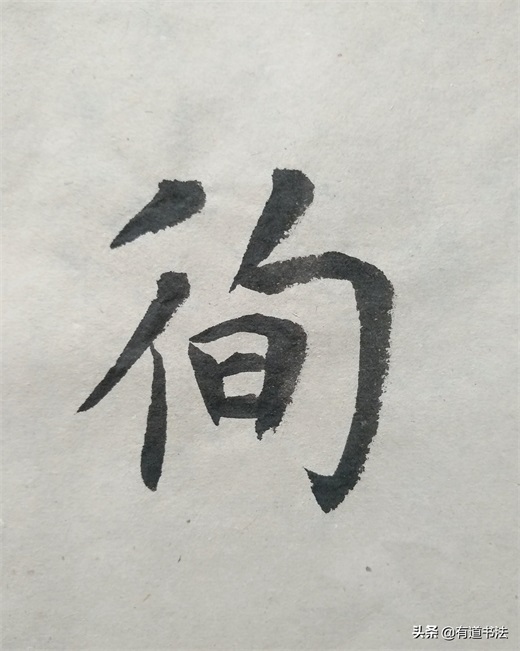 徇
头条 @有道书法